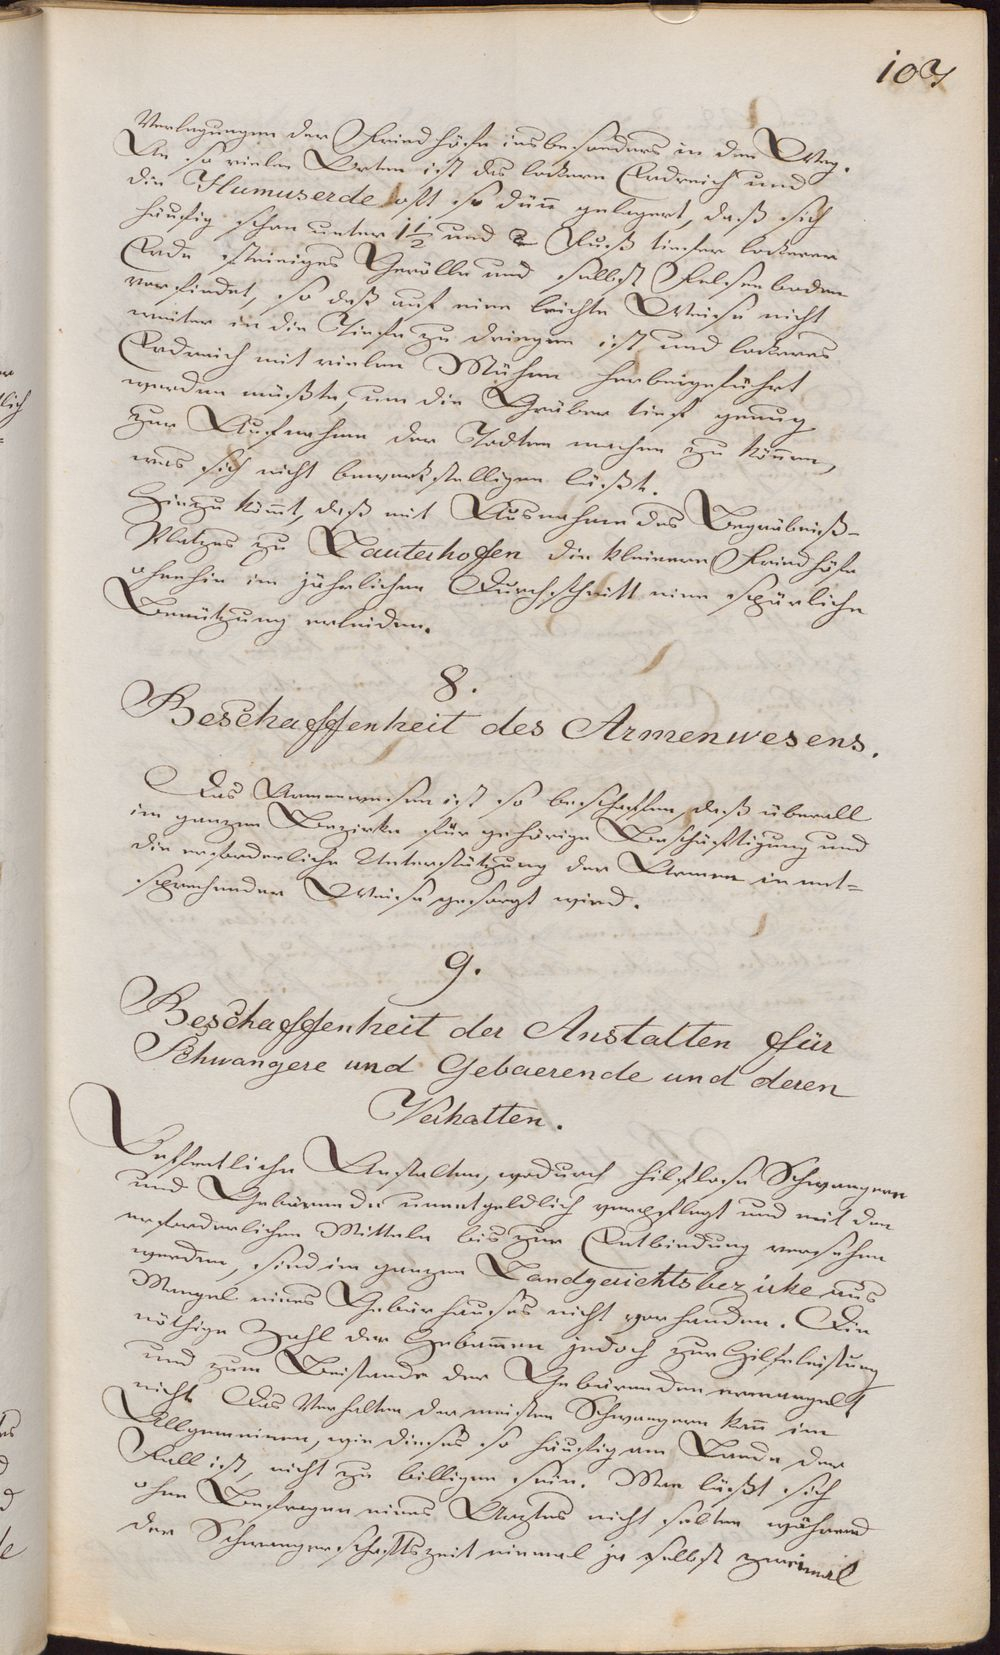 107
Verlegungen der Friedhöfe insbesonders in den Weg.
An so vielen Orten ist das lockere Erdreich und
die Humuserde oft so dünn gelagert, daß sich
häufig schon unter 1 1/2 und 2 Fuß tiefer lockerer
Erde steiniges Gerölle und selbst Felsenboden
vorfindet, so daß auf eine leichte Weise nicht
weiter in die Tiefe zu dringen ist und lockeres
Erdreich mit vielen Mühen herbeigeführt
werden müßte, um die Gräber tief genug
zur Aufnahme der Todten machen zu können,
was sich nicht bewerkstelligen läßt.
Hinzu kömmt, daß mit Ausnahme des Begräbniß-
Platzes zu Lauterhofen die kleinern Friedhöfe
ohnehin im jährlichen Durchschnitt eine spärliche
Benützung erleiden.
8.
Beschaffenheit des Armenwesens.
Das Armenwesen ist so beschaffen, daß überall
im ganzen Bezirke für gehörige Beschäftigung und
die erforderliche Unterstützung der Armen in ent=
sprechender Weise gesorgt wird.
9.
Beschaffenheit der Anstalten für
Schwangere und Gebaerende und deren
Verhalten.
Oeffentliche Anstalten, wodurch hilflose Schwangere
und Gebärende unentgeldlich verpflegt und mit den
erforderlichen Mitteln bis zur Entbindung versehen
werden, sind im ganzen Landgerichtsbezirke aus
Mangel eines Gebärhauses nicht vorhanden. Die
nöthige Zahl der Hebammen jedoch zur Hilfeleistung
und zum Beistande der Gebärenden ermangelt
nicht. Das Verhalten der meisten Schwangern kann im
Allgemeinen, wie dieses so häufig am Lande der
Fall ist, nicht zu billigen sein. Man läßt sich
ohne Befragen eines Arztes nicht selten während
der Schwangerschaftszeit einmal ja selbst zweimal